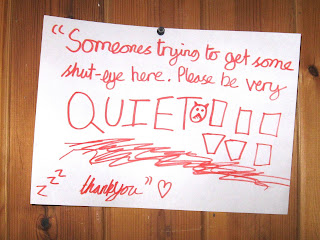 "Someones trying to get some
shut-eye here. Please be very
QUIET
zzz thankyou" ♡